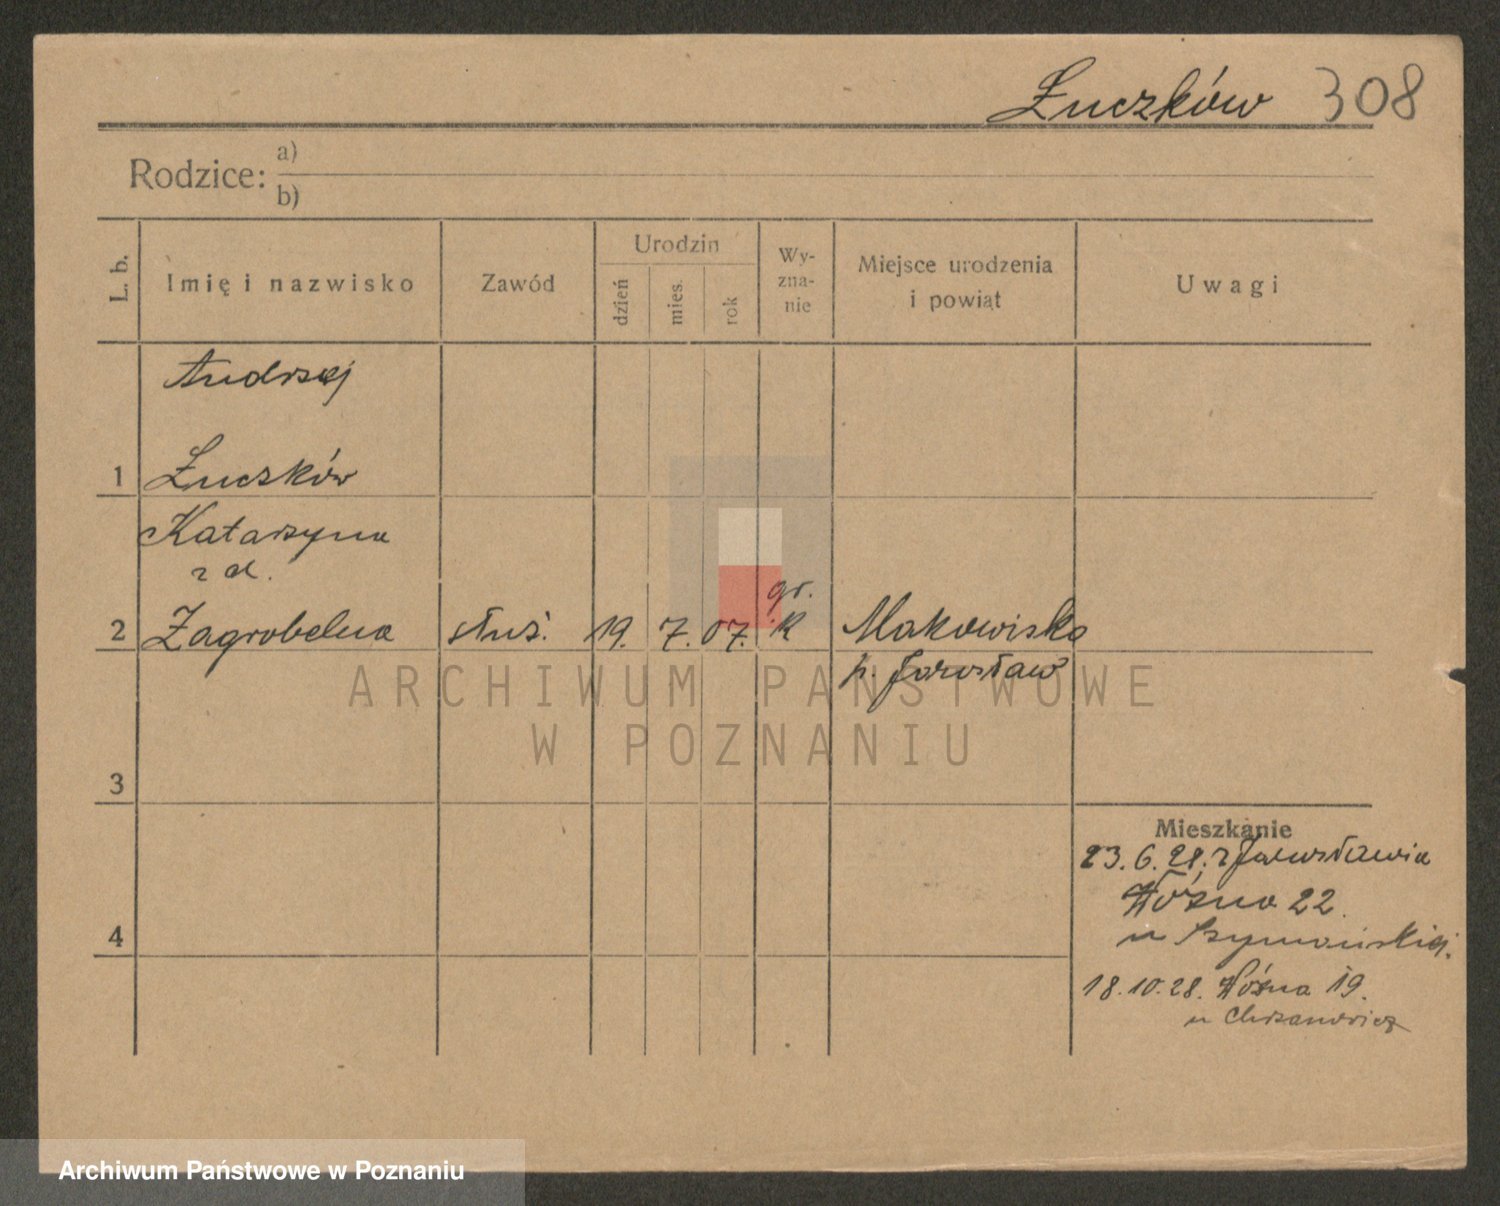 Łuczków 308
Rodzice: a)
b)
L. b.
Imię i nazwisko
Zawód
Urodzin
dzień
mies.
rok
Wy-
zna-
nie
Miejsce urodzenia
i powiat
Uwagi
Andrzej
1 Łuczków
Katarzyna
z d.
gr.
2 Zagrobelna służ. 19. 7. 07. K Makowisko
p. Jarosław
ARCHIWUM PAŃSTWOWE
W POZNANIU
3
Mieszkanie
23.6.28. z Jarosławia
Woźna 22
4
u Szymańskiej.
18.10.28. Woźna 19.
u Chrzanowicz
Archiwum Państwowe w Poznaniu